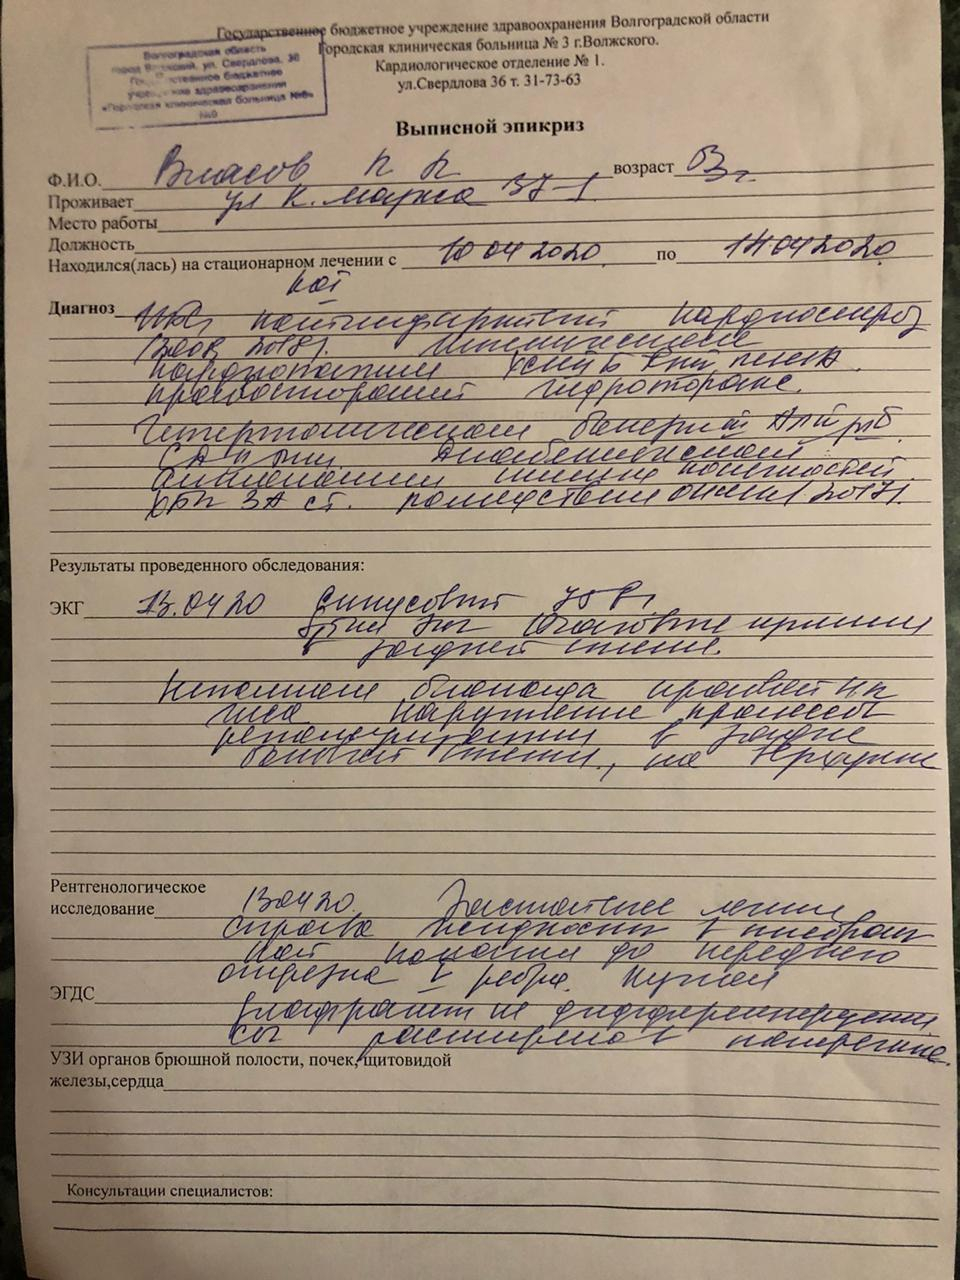 Государственное бюджетное учреждение здравоохранения Волгоградской области
Городская клиническая больница № 3 г.Волжского.
Кардиологическое отделение № 1.
ул.Свердлова 36 т. 31-73-63
Волгоградская область
город Волжский, ул. Свердлова, 36
Государственное бюджетное
учреждение здравоохранения
«Городская клиническая больница
Выписной эпикриз
Ф.И.О. Власов возраст
Проживает ул К. Маркса 37-1
Место работы
Должность
Находился(лась) на стационарном лечении с 10 04 2020 по 14 04 2020
Диагноз ИБС постинфарктный кардиосклероз
2018г. Ишемическая
кардиопатия
правосторонний гидроторакс.
Гипертоническая болезнь
СД Диабетическая
ангиопатия нижних конечностей
ХБП 3А ст. последствия ОНМК 2017г.
Результаты проведенного обследования:
ЭКГ 13.04 20 Синусовый
Очаговые
задней стенки.
Неполная блокада правой н п
гиса нарушение процессов
реполяризации в задне
боковой стенке, на верхушке
Рентгенологическое
исследование 13 04 20. Застойные легкие
Справа жидкость в плевраль
ной полости до переднего
отрезка V ребра. Купол
ЭГДС
диафрагмы не дифференцируется
расширено в поперечнике.
УЗИ органов брюшной полости, почек,щитовидой
железы,сердца
Консультации специалистов: